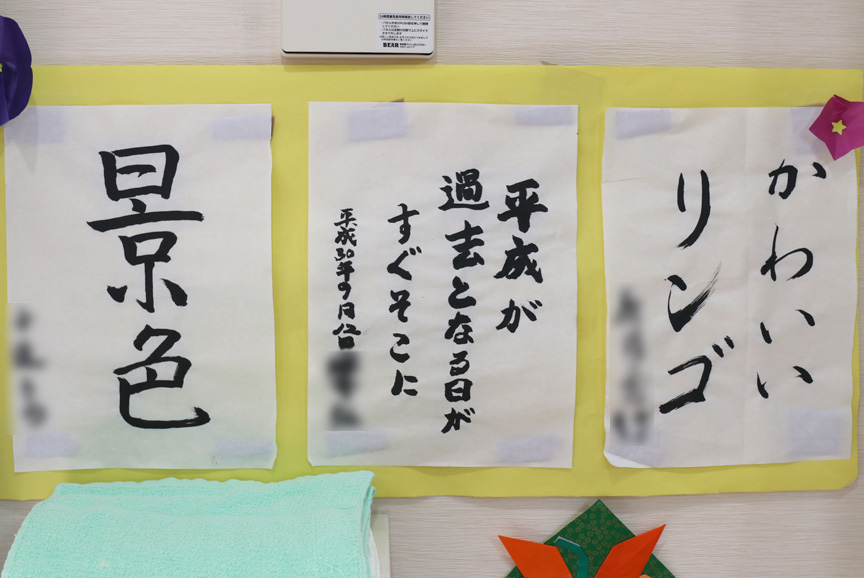 かわいい
リンゴ
平成が
過去となる日が
すぐそこに
平成30年9月12日
景色
BEAR